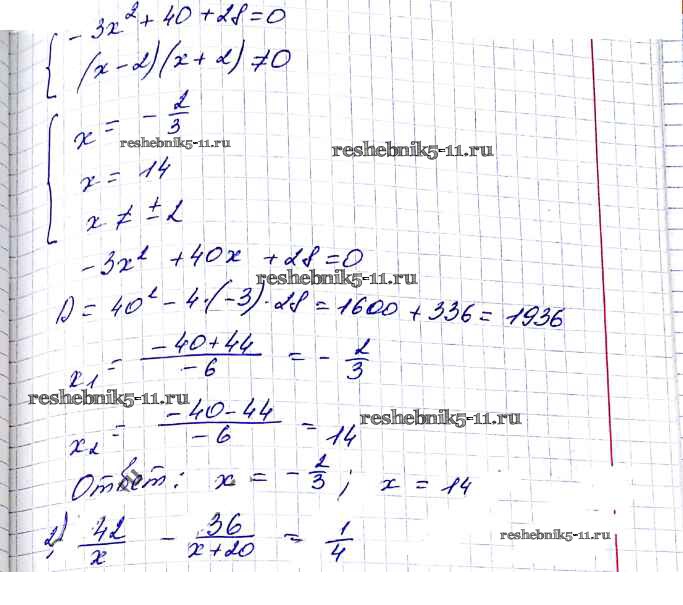 -3x² + 40 + 28 = 0
(x-2)(x+2) ≠ 0
x = -2/3
reshebnik5-11.ru
reshebnik5-11.ru
x = 14
x ≠ ±2
-3x² + 40x + 28 = 0
reshebnik5-11.ru
D = 40² - 4·(-3)·28 = 1600 + 336 = 1936
x₁ = (-40+44)/(-6) = -2/3
reshebnik5-11.ru
reshebnik5-11.ru
x₂ = (-40-44)/(-6) = 14
Ответ: x = -2/3; x = 14
2) 42/x - 36/(x+20) = 1/4
reshebnik5-11.ru